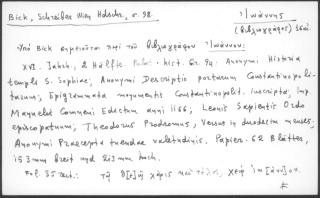 Bick, Schreiber Wien Hdschr., σ. 92.
Ἰωάννης
(βιβλιογράφος) 16αί.
Ὑπὸ Bick σημειοῦται περὶ τοῦ βιβλιογράφου Ἰωάννου:
XVI. Jahrh. 2 Hälfte. hist. Gr. 94: Anonymi Historia
templi S. Sophiae; Anonymi Descriptio portarum Constantinopoli-
tanarum; Epigrammata monumentis Constantinopolit. inscripta; Imp.
Manuelis Comneni Edictum anni 1166; Leonis Sapientis Ordo
episcopatuum; Theodorus Prodromus, Versus in duodecim menses;
Anonymi Praecepta tuendae valetudinis. Papier. 62 Blätter,
153 mm breit und 213 mm hoch.
Fol. 35 rect.: τῷ Θ[ε]ῷ χάρις καὶ τέλος, χεὶρ Ἰω[άνν]ου.